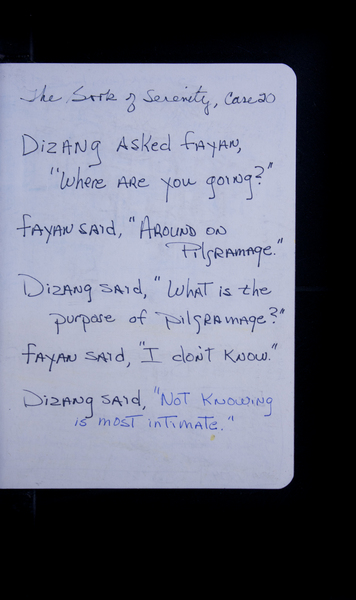 The Book of Serenity, Case 20
Dizang asked Fayan,
"Where are you going?"
Fayan said, "Around on
Pilgramage."
Dizang said, "What is the
purpose of pilgramage?"
Fayan said, "I don't know."
Dizang said, "Not knowing
is most intimate."